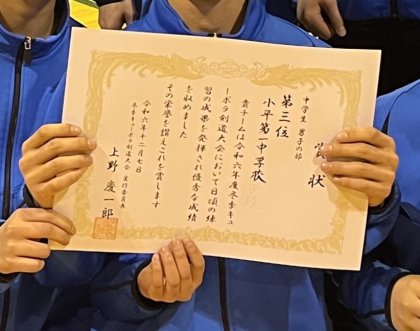 賞状
中学生 男子の部
第三位
小平第一中学校
貴チームは令和六年度冬季キュ
ーポラ剣道大会において日頃の練
習の成果を発揮され優秀な成績
を収めました
その栄誉を讃えこれを賞します
令和六年十二月七日
冬季キューポラ剣道大会 実行委員長
上野 慶一郎